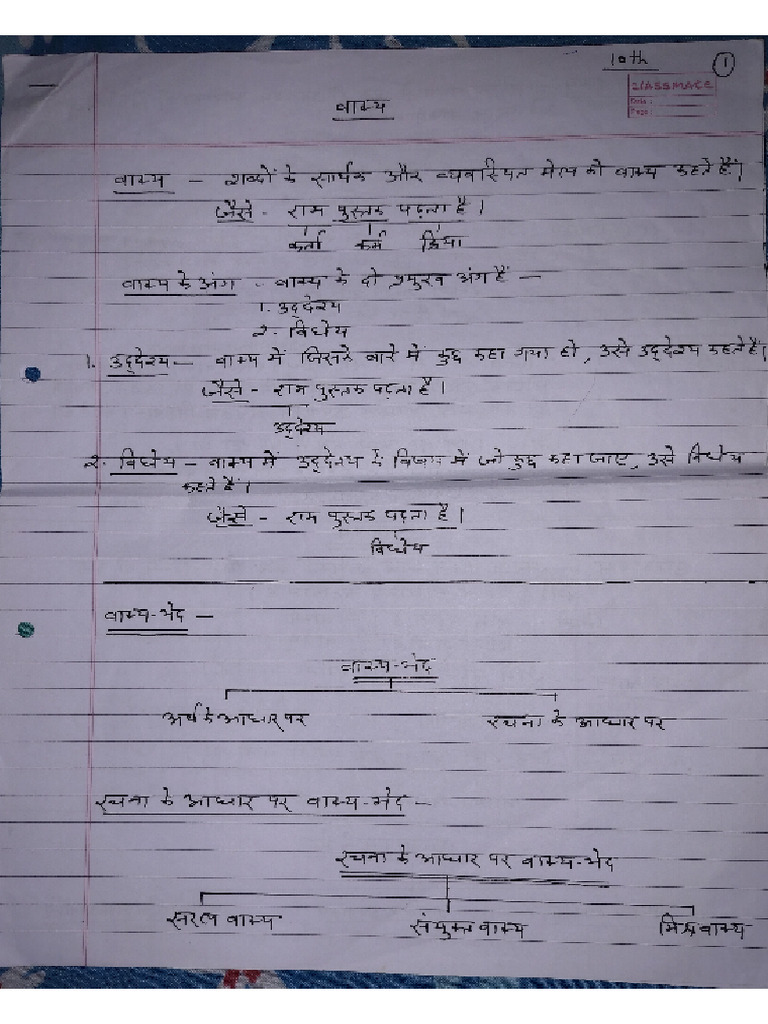 10th
1
CLASSMATE
Date :
Page :
वाक्य
वाक्य - शब्दों के सार्थक और व्यवस्थित मेल को वाक्य कहते हैं।
जैसे - राम पुस्तक पढ़ता है।
कर्ता कर्म क्रिया
वाक्य के अंग - वाक्य के दो प्रमुख अंग हैं -
1. उद्देश्य
2. विधेय
1. उद्देश्य - वाक्य में जिसके बारे में कुछ कहा गया हो, उसे उद्देश्य कहते हैं।
जैसे - राम पुस्तक पढ़ता है।
उद्देश्य
2. विधेय - वाक्य में उद्देश्य के विषय में जो कुछ कहा जाए, उसे विधेय
कहते हैं।
जैसे - राम पुस्तक पढ़ता है।
विधेय
वाक्य-भेद -
वाक्य-भेद
अर्थ के आधार पर रचना के आधार पर
रचना के आधार पर वाक्य-भेद -
रचना के आधार पर वाक्य-भेद
सरल वाक्य संयुक्त वाक्य मिश्र वाक्य